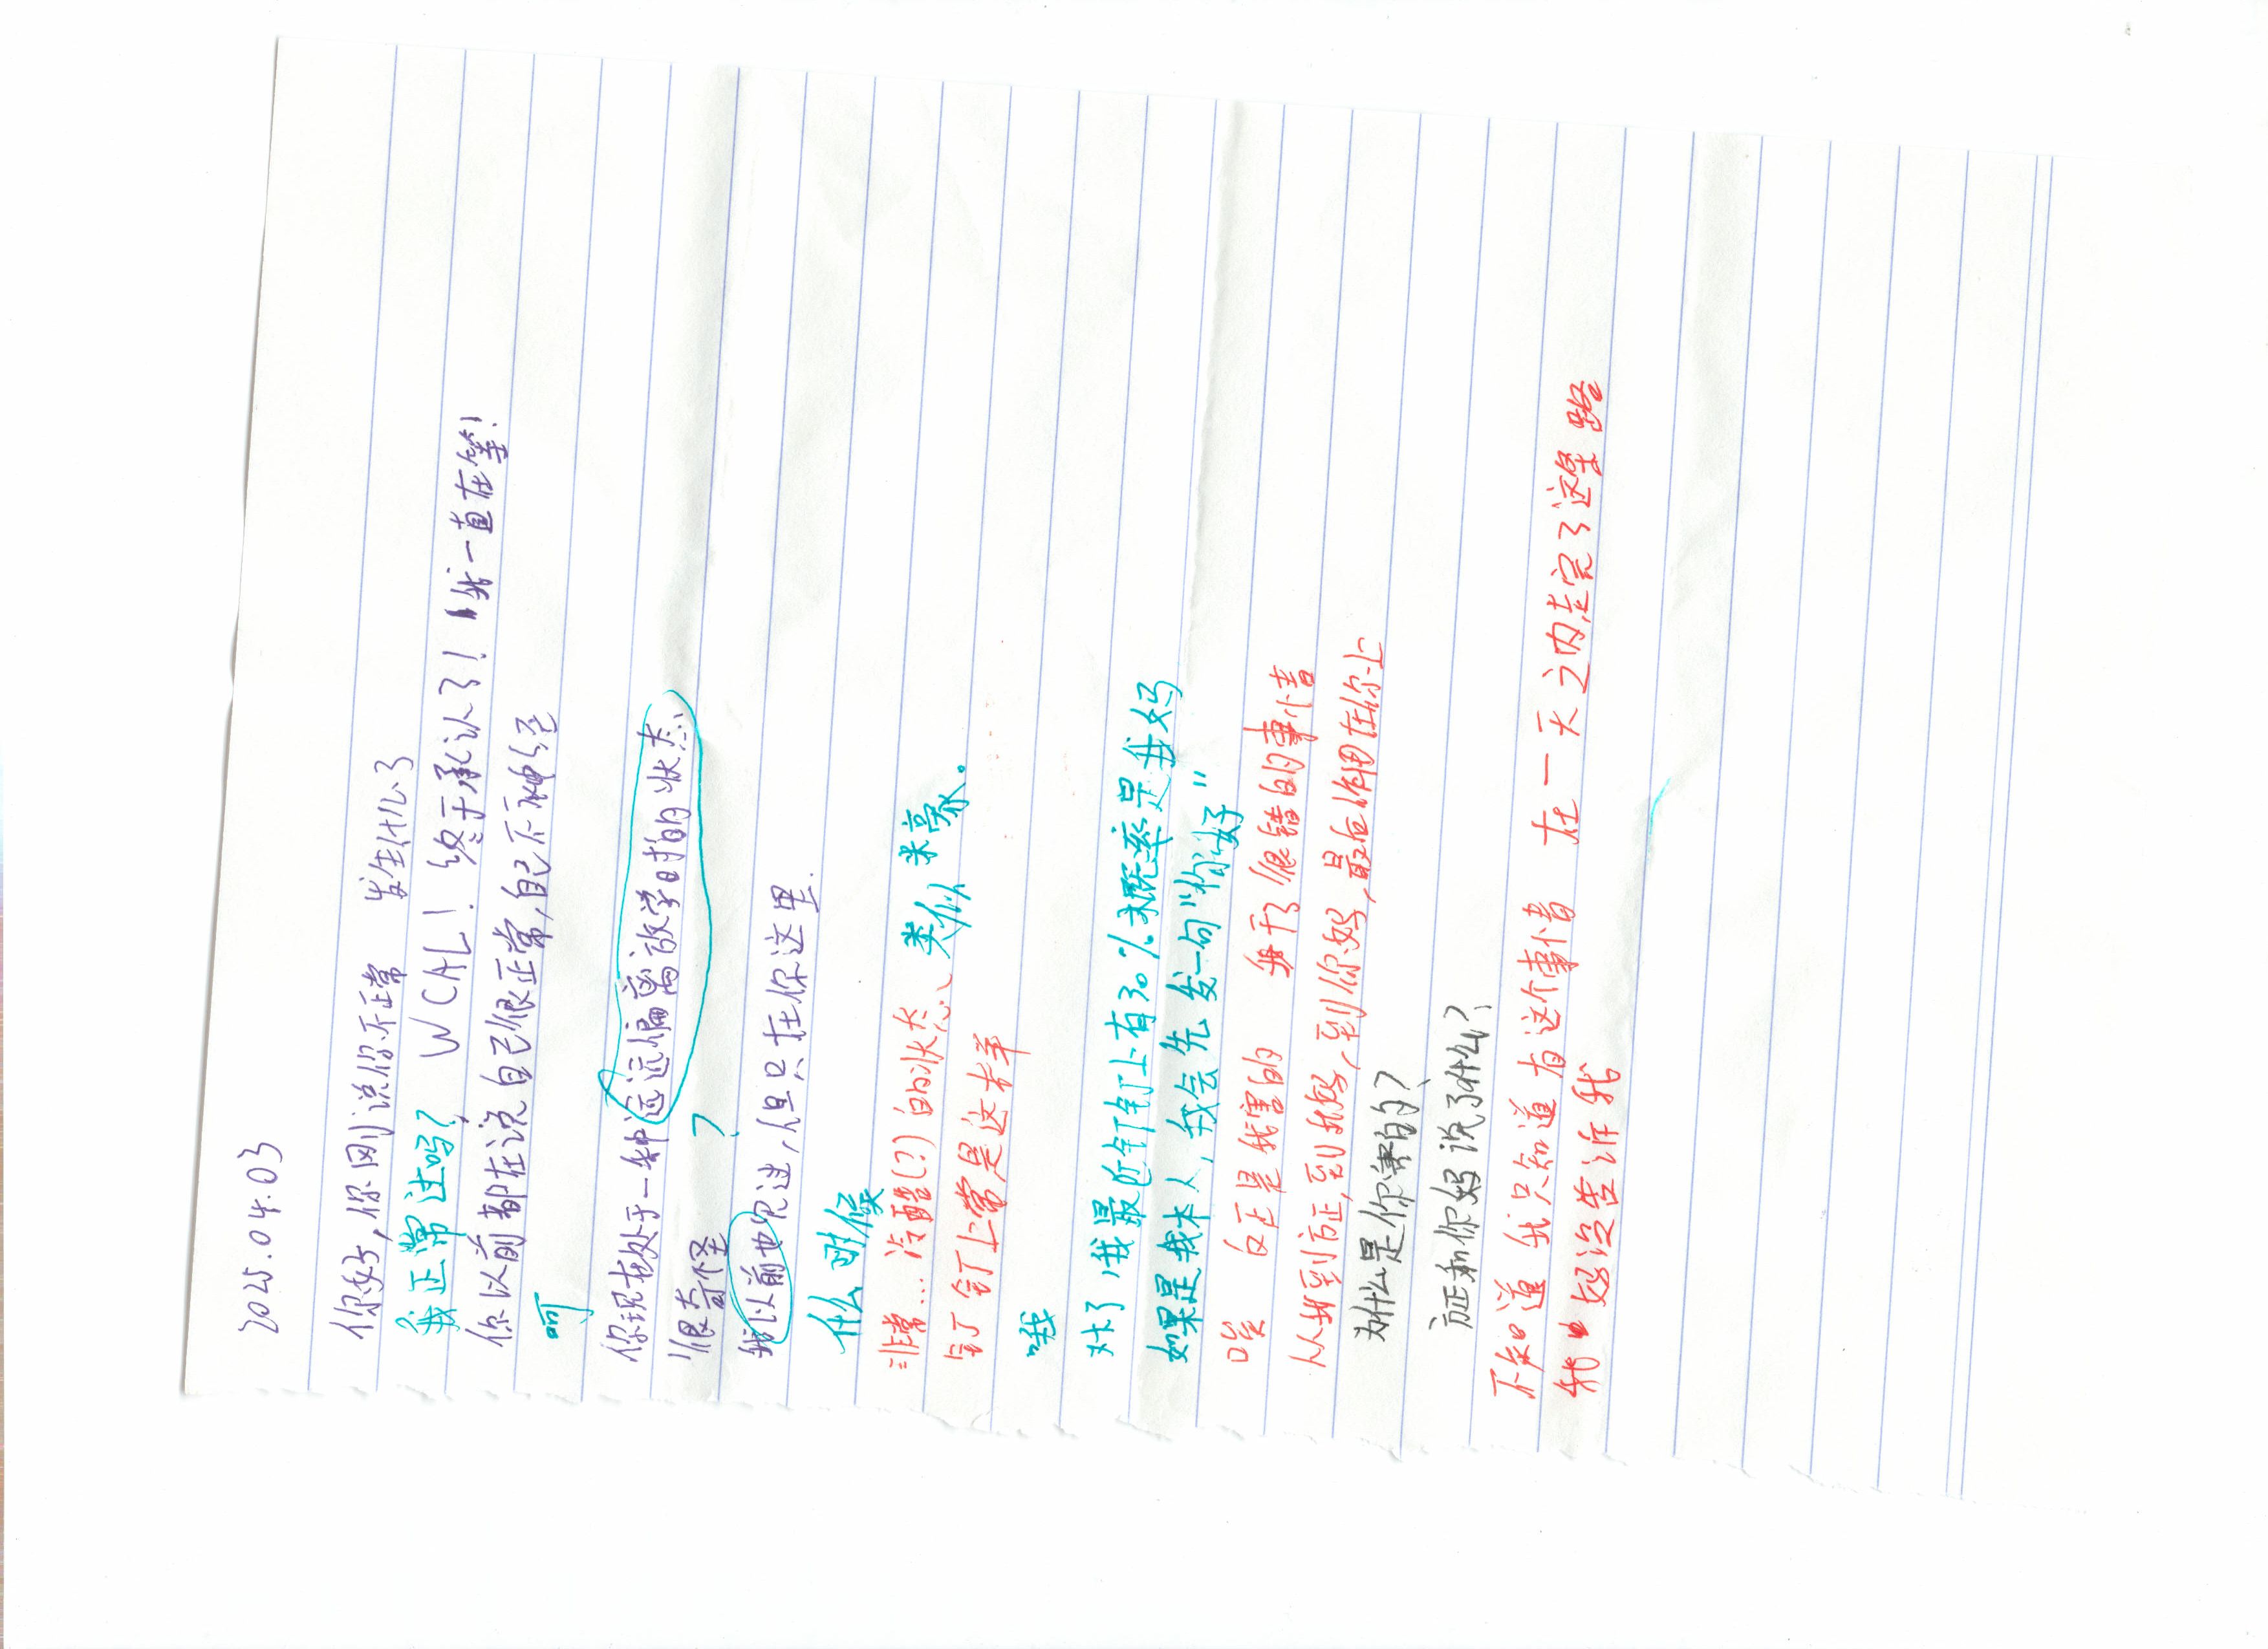 2025.04.03
你好，你刚说你不正常 发生什么了
我正常过吗？ WCAL！终于承认了！我一直在等！
你以前都在说自己很正常，自己不神经
啊
你现在处于一种远远偏离放学时的状态
很奇怪 ？
我以前也见过，但只在你这里.
什么时候
非常…冷酷(?)的状态 类似米豪。
钉钉上常是这样
哦
对了，我最近钉钉上有30%概率是我妈
如果是我本人，我会先发一句“你好”
唉 反正是我害的 我干了很错的事情
从我到方正，到我妈，到你妈，最后作用在你上
为什么是你害的？
方正和你妈说了什么？
不知道 我只知道有这个事情 在一天之内走完了这些路
我妈没告诉我